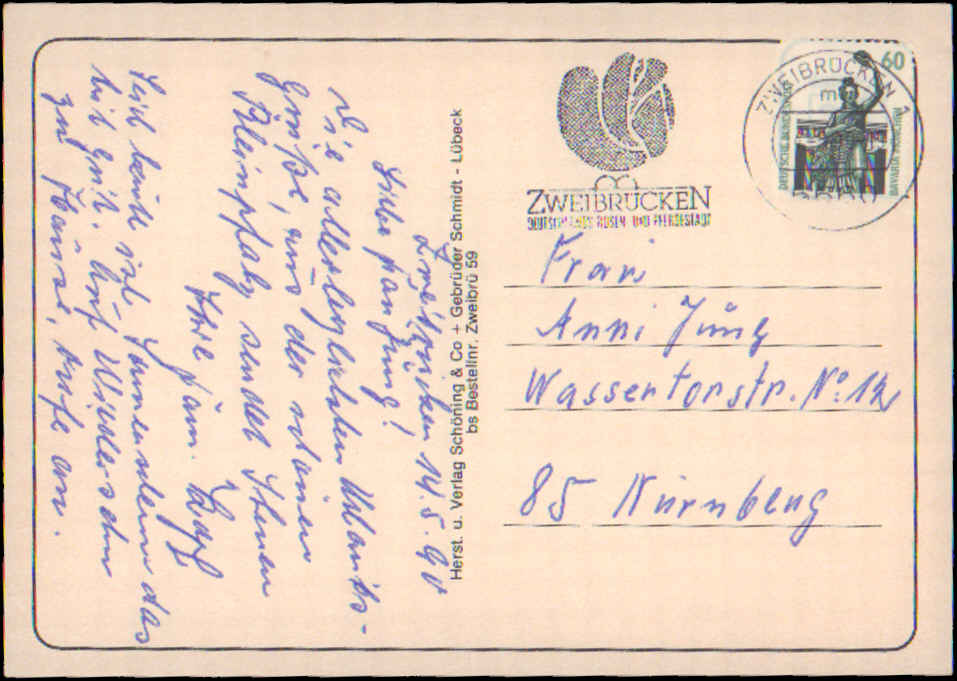 Zweibrücken, 14.5.90
Liebe Frau Jung!
Die allerherzlichsten Urlaubs-
Grüße, aus der schönen
Rheinpfalz sendet Ihnen
Ihre Fam.
Seid heute
bis Auf Wiedersehn
zu Hause, rufe an.
Herst. u. Verlag Schöning & Co + Gebrüder Schmidt - Lübeck
bs Bestellnr. Zweibrü 59
ZWEIBRÜCKEN
DEUTSCHLANDS ROSEN- UND PFERDESTADT
ZWEIBRÜCKEN 1
60
DEUTSCHE BUNDESPOST
BAVARIA MÜNCHEN
Frau
Anni Jung
Wassertorstr. No 12
85 Nürnberg